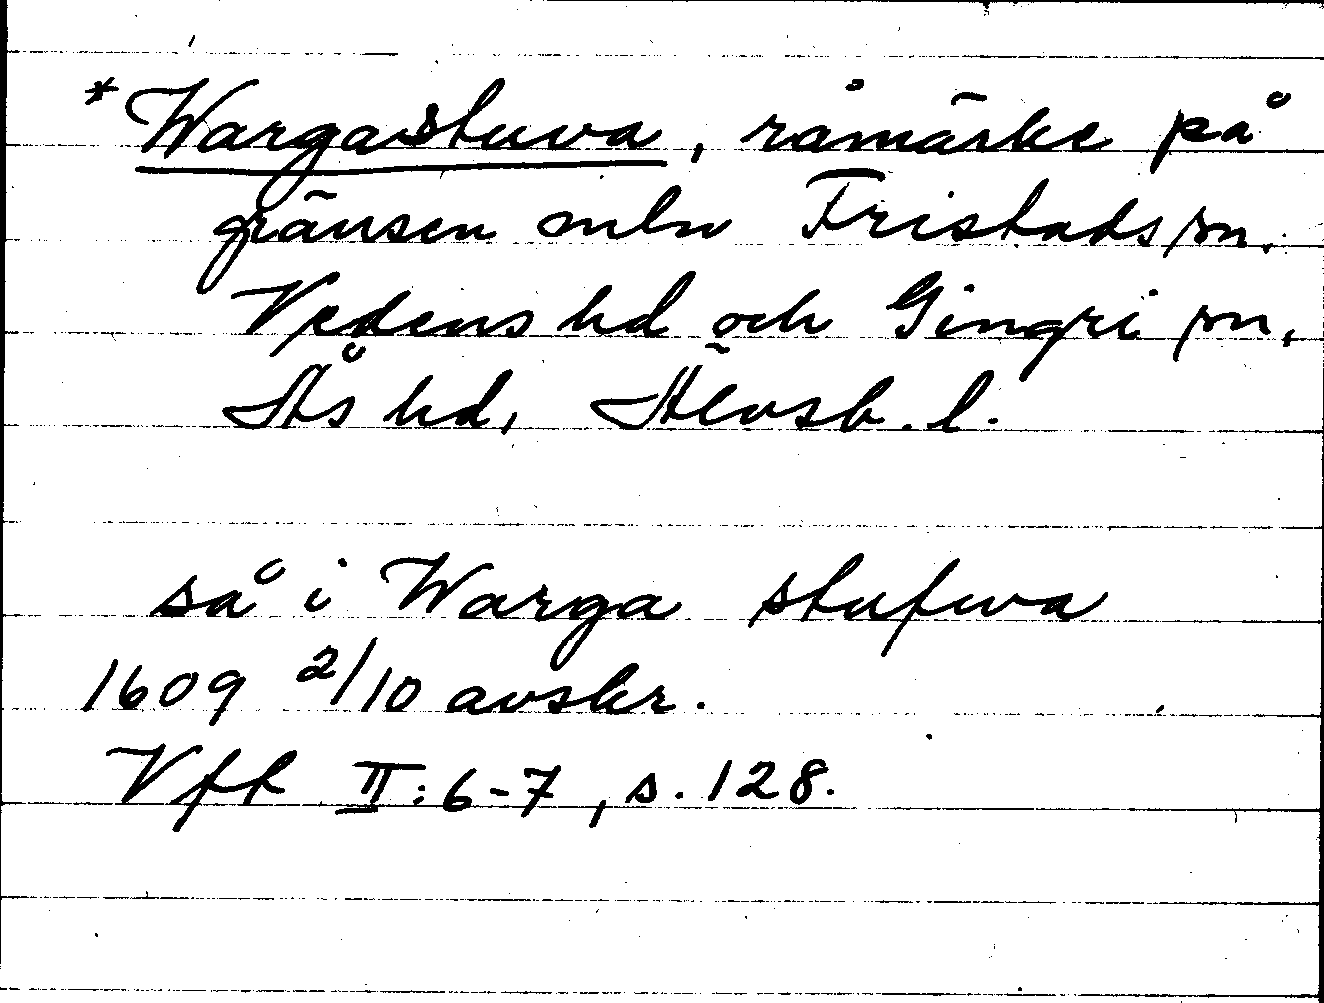 *Wargastuva, råmärke på
gränsen mln Fristads sn.
Vedens hd och Gingri sn,
Ås hd, Älvsb. l.
så i Warga stufwa
1609 2/10 avskr.
Vft II:6-7, s. 128.